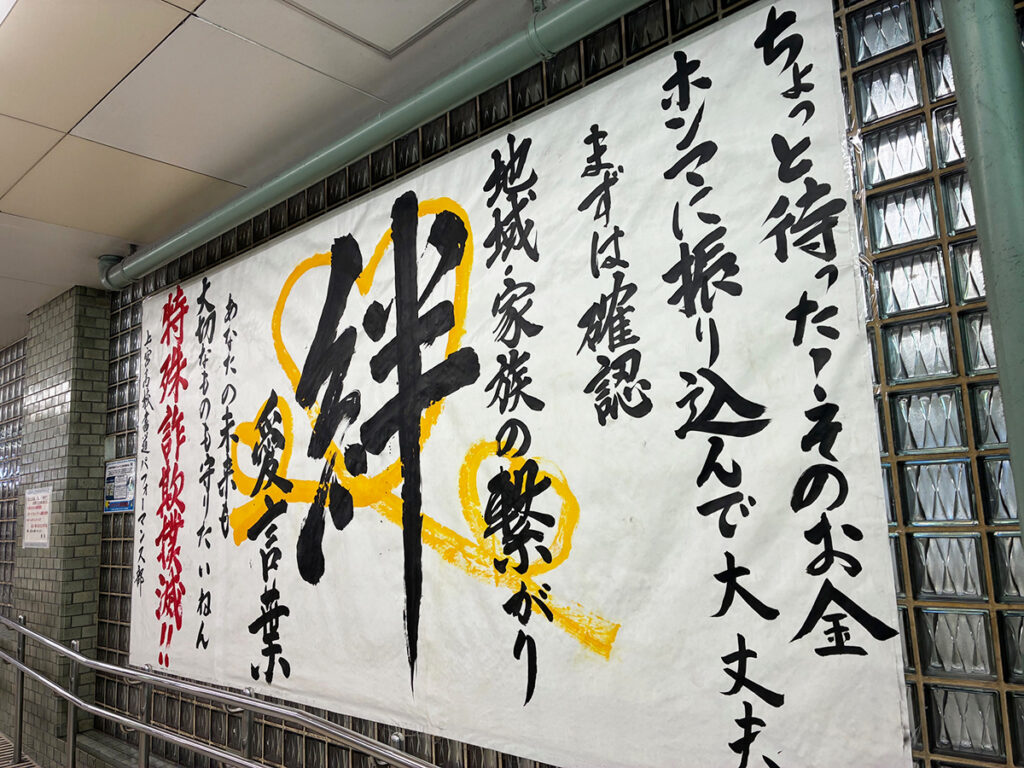 ちょっと待った、そのお金
ホンマに振り込んで大丈夫
まずは確認
地域・家族の繋がり
絆
愛言葉
あなたの未来も
大切なものも守りたいねん
特殊詐欺撲滅!!
上宮高校書道パフォーマンス部